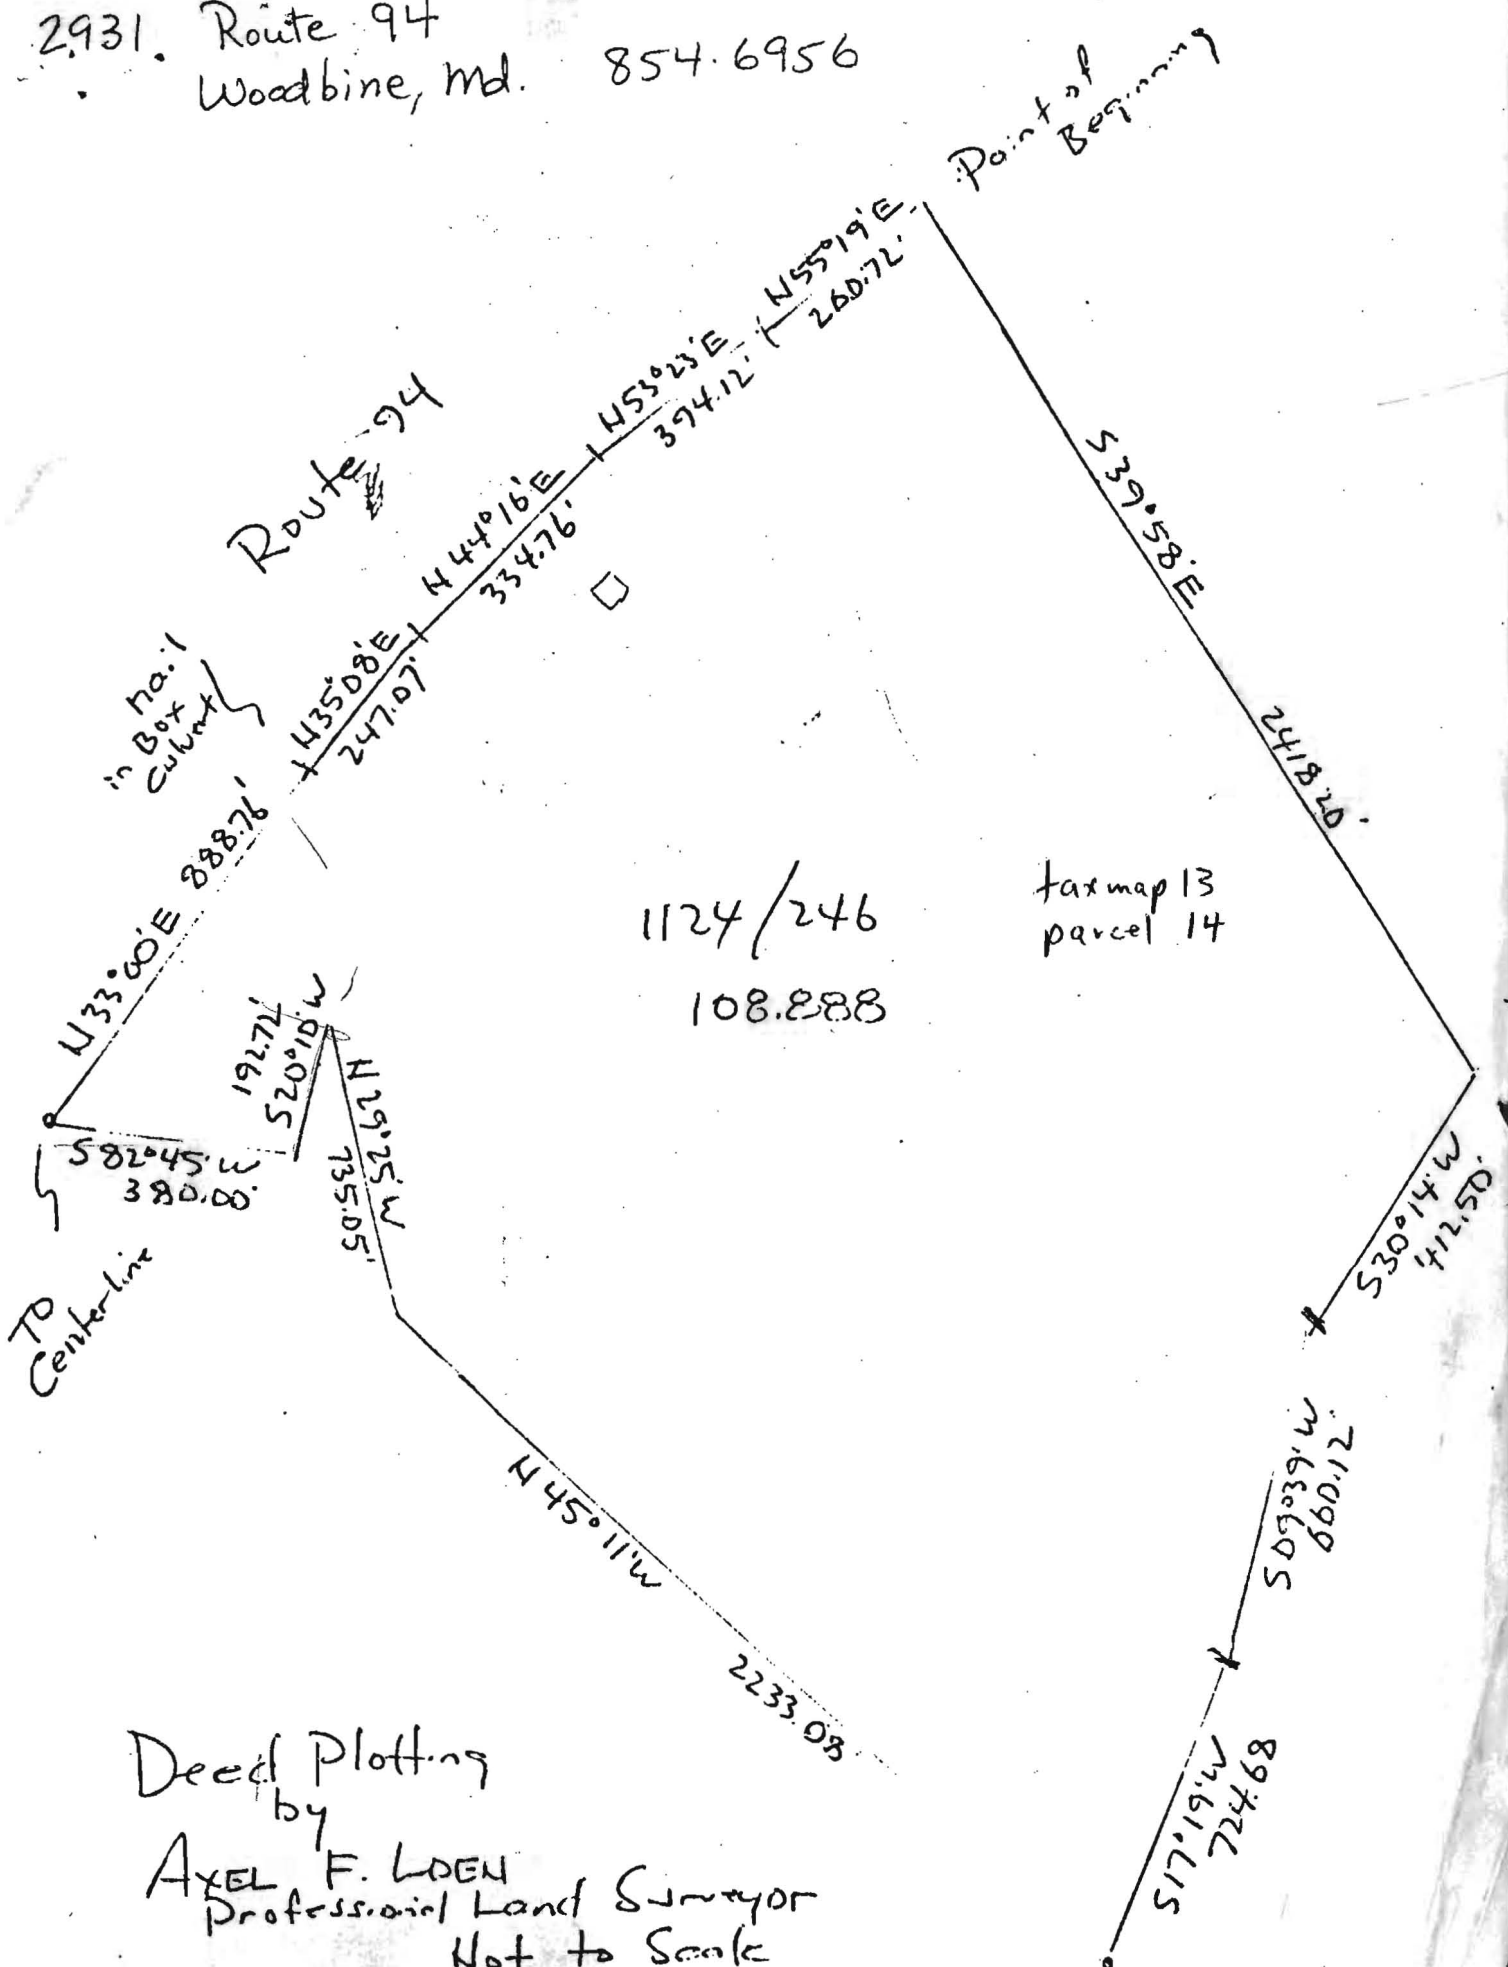 2931. Route 94
Woodbine, Md. 854.6956
Point of
Beginning
N55°19'E
260.72'
N53°23'E
394.12'
Route 94
N44°16'E
334.76'
N35°08'E
247.07'
nail
in Box
Culvert
N33°00'E 888.76'
S39°58'E
2418.20'
1124/246
108.888
taxmap 13
parcel 14
192.72'
S20°10'W
N29°25'W
735.05'
S82°45'W
380.00'
TO
Centerline
S30°14'W
412.50'
S09°39'W
660.12
N45°11'W
2233.08
S17°19'W
724.68
Deed Plotting
by
AXEL F. LOEN
Professional Land Surveyor
Not to Scale